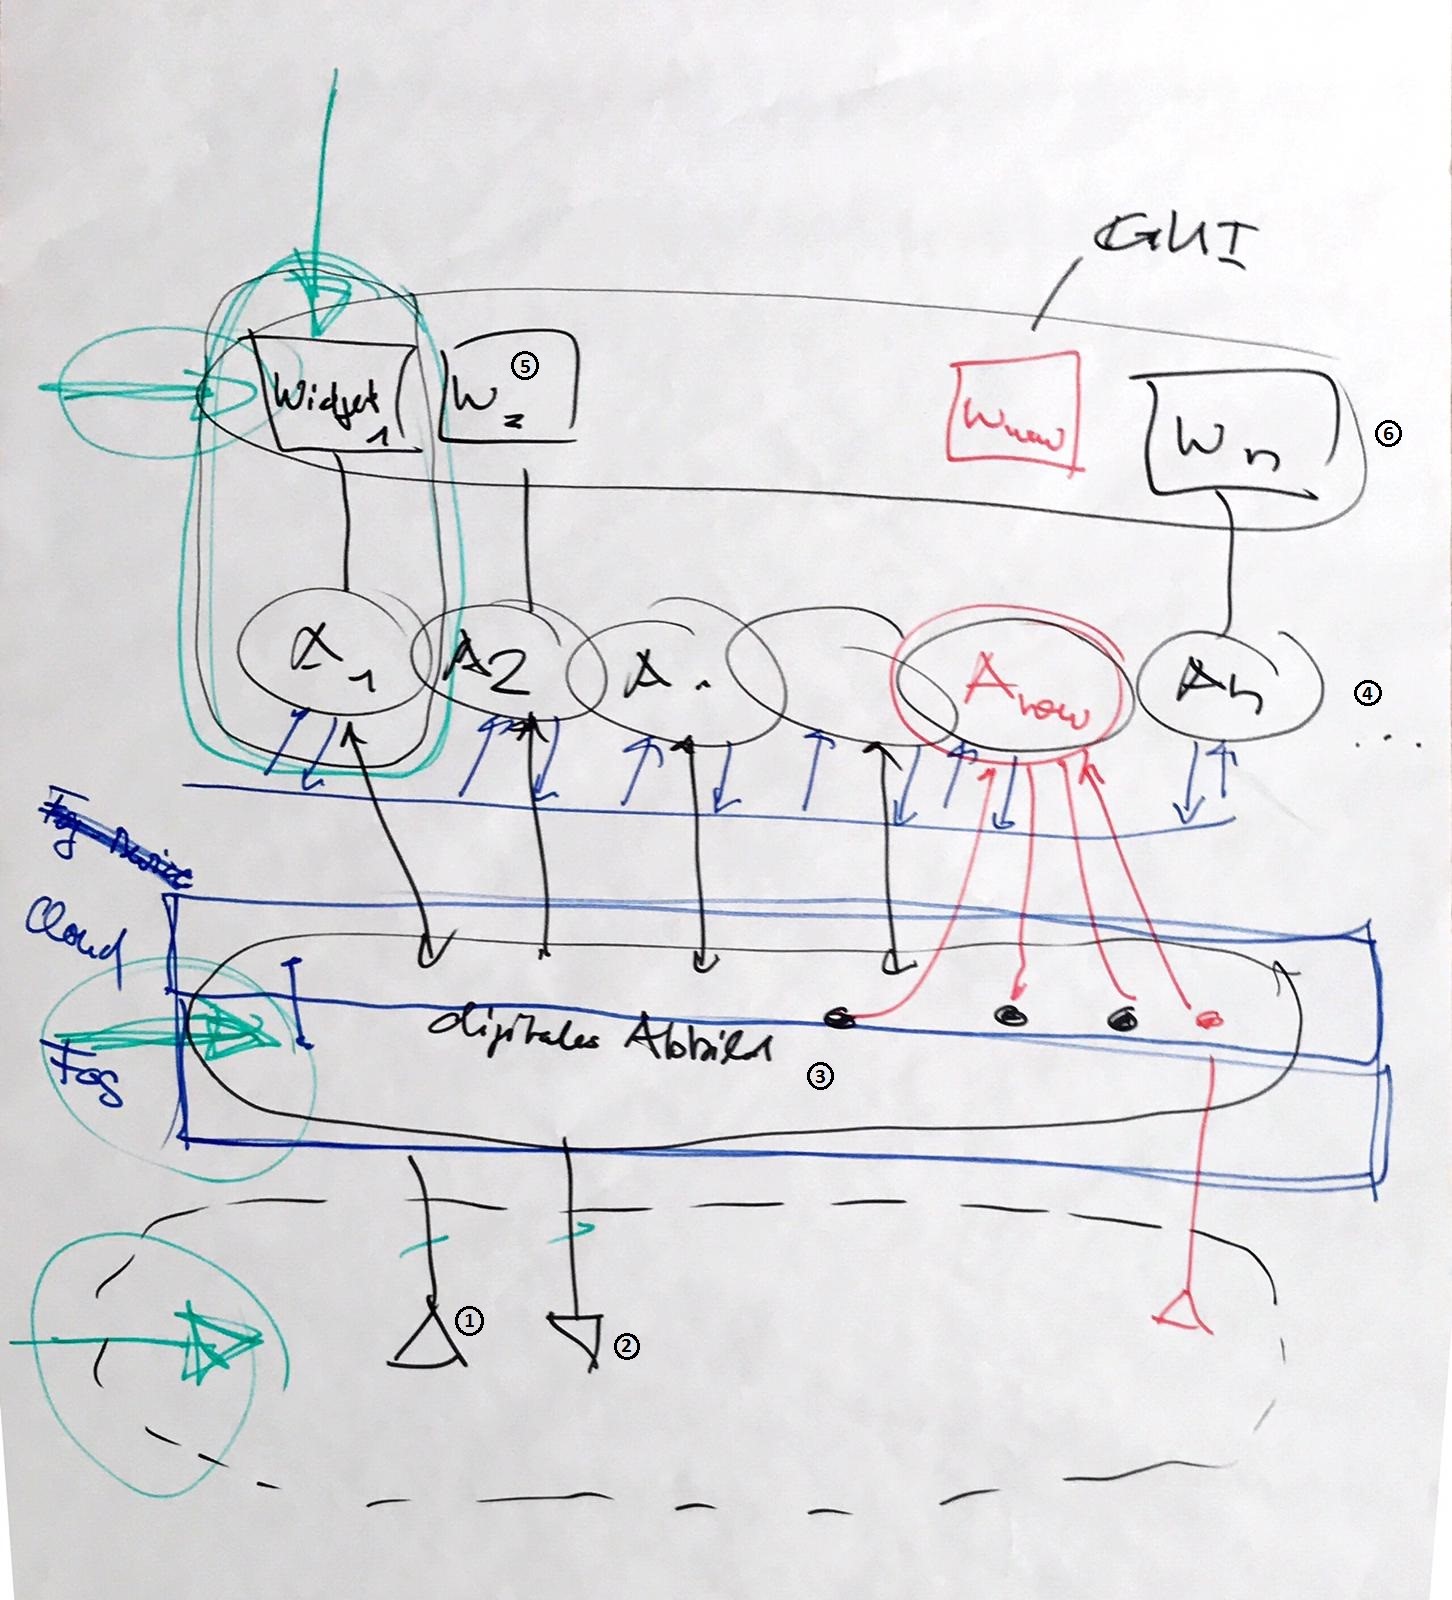 GUI
Widget 1
W2
⑤
Wnew
Wn
⑥
A1
A2
A.
Anew
An
④
...
Cloud
digitales Abbild
③
Fog
①
②